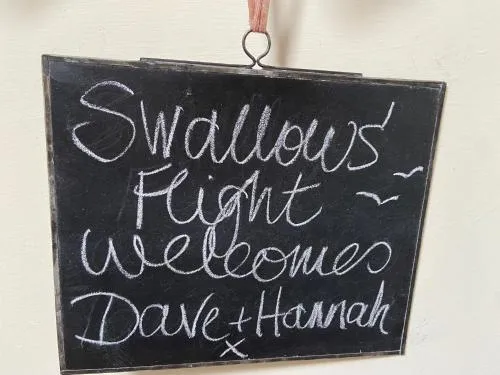 Swallows'
Flight
Welcomes
Dave + Hannah
x